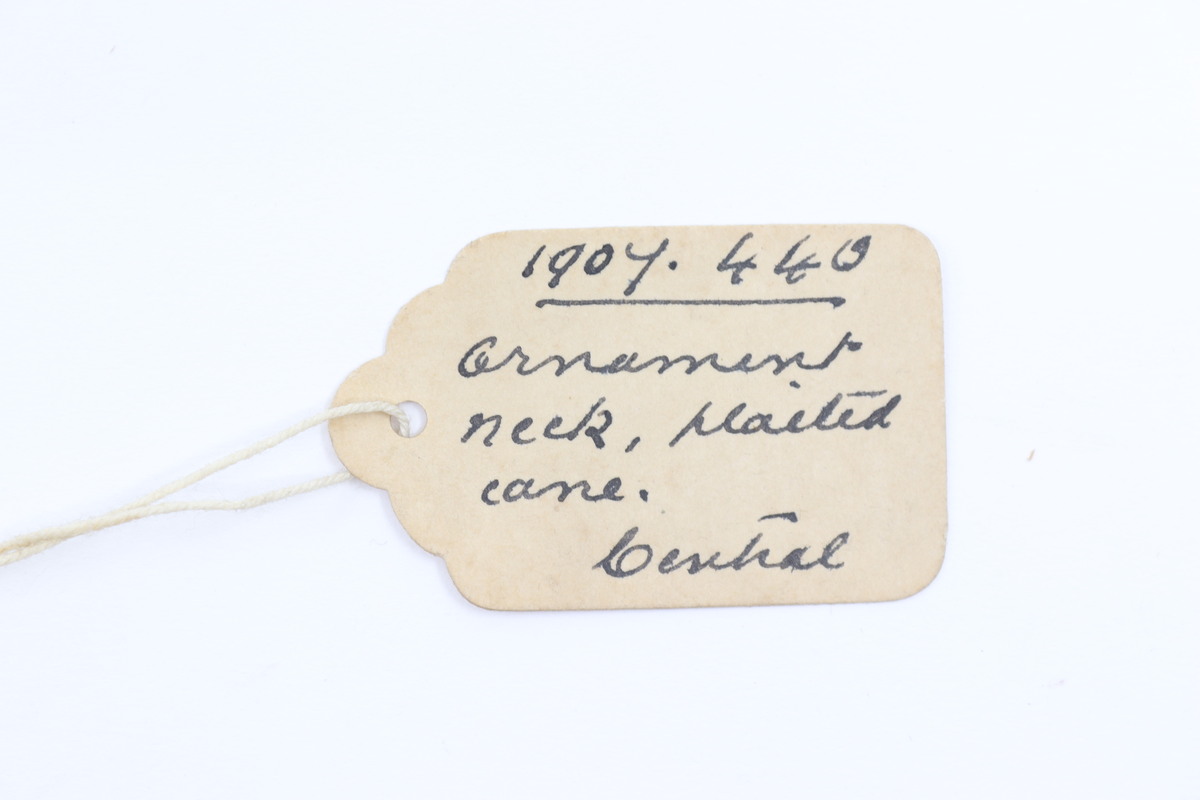 1907. 440
Ornament
neck, plaited
cane.
Central